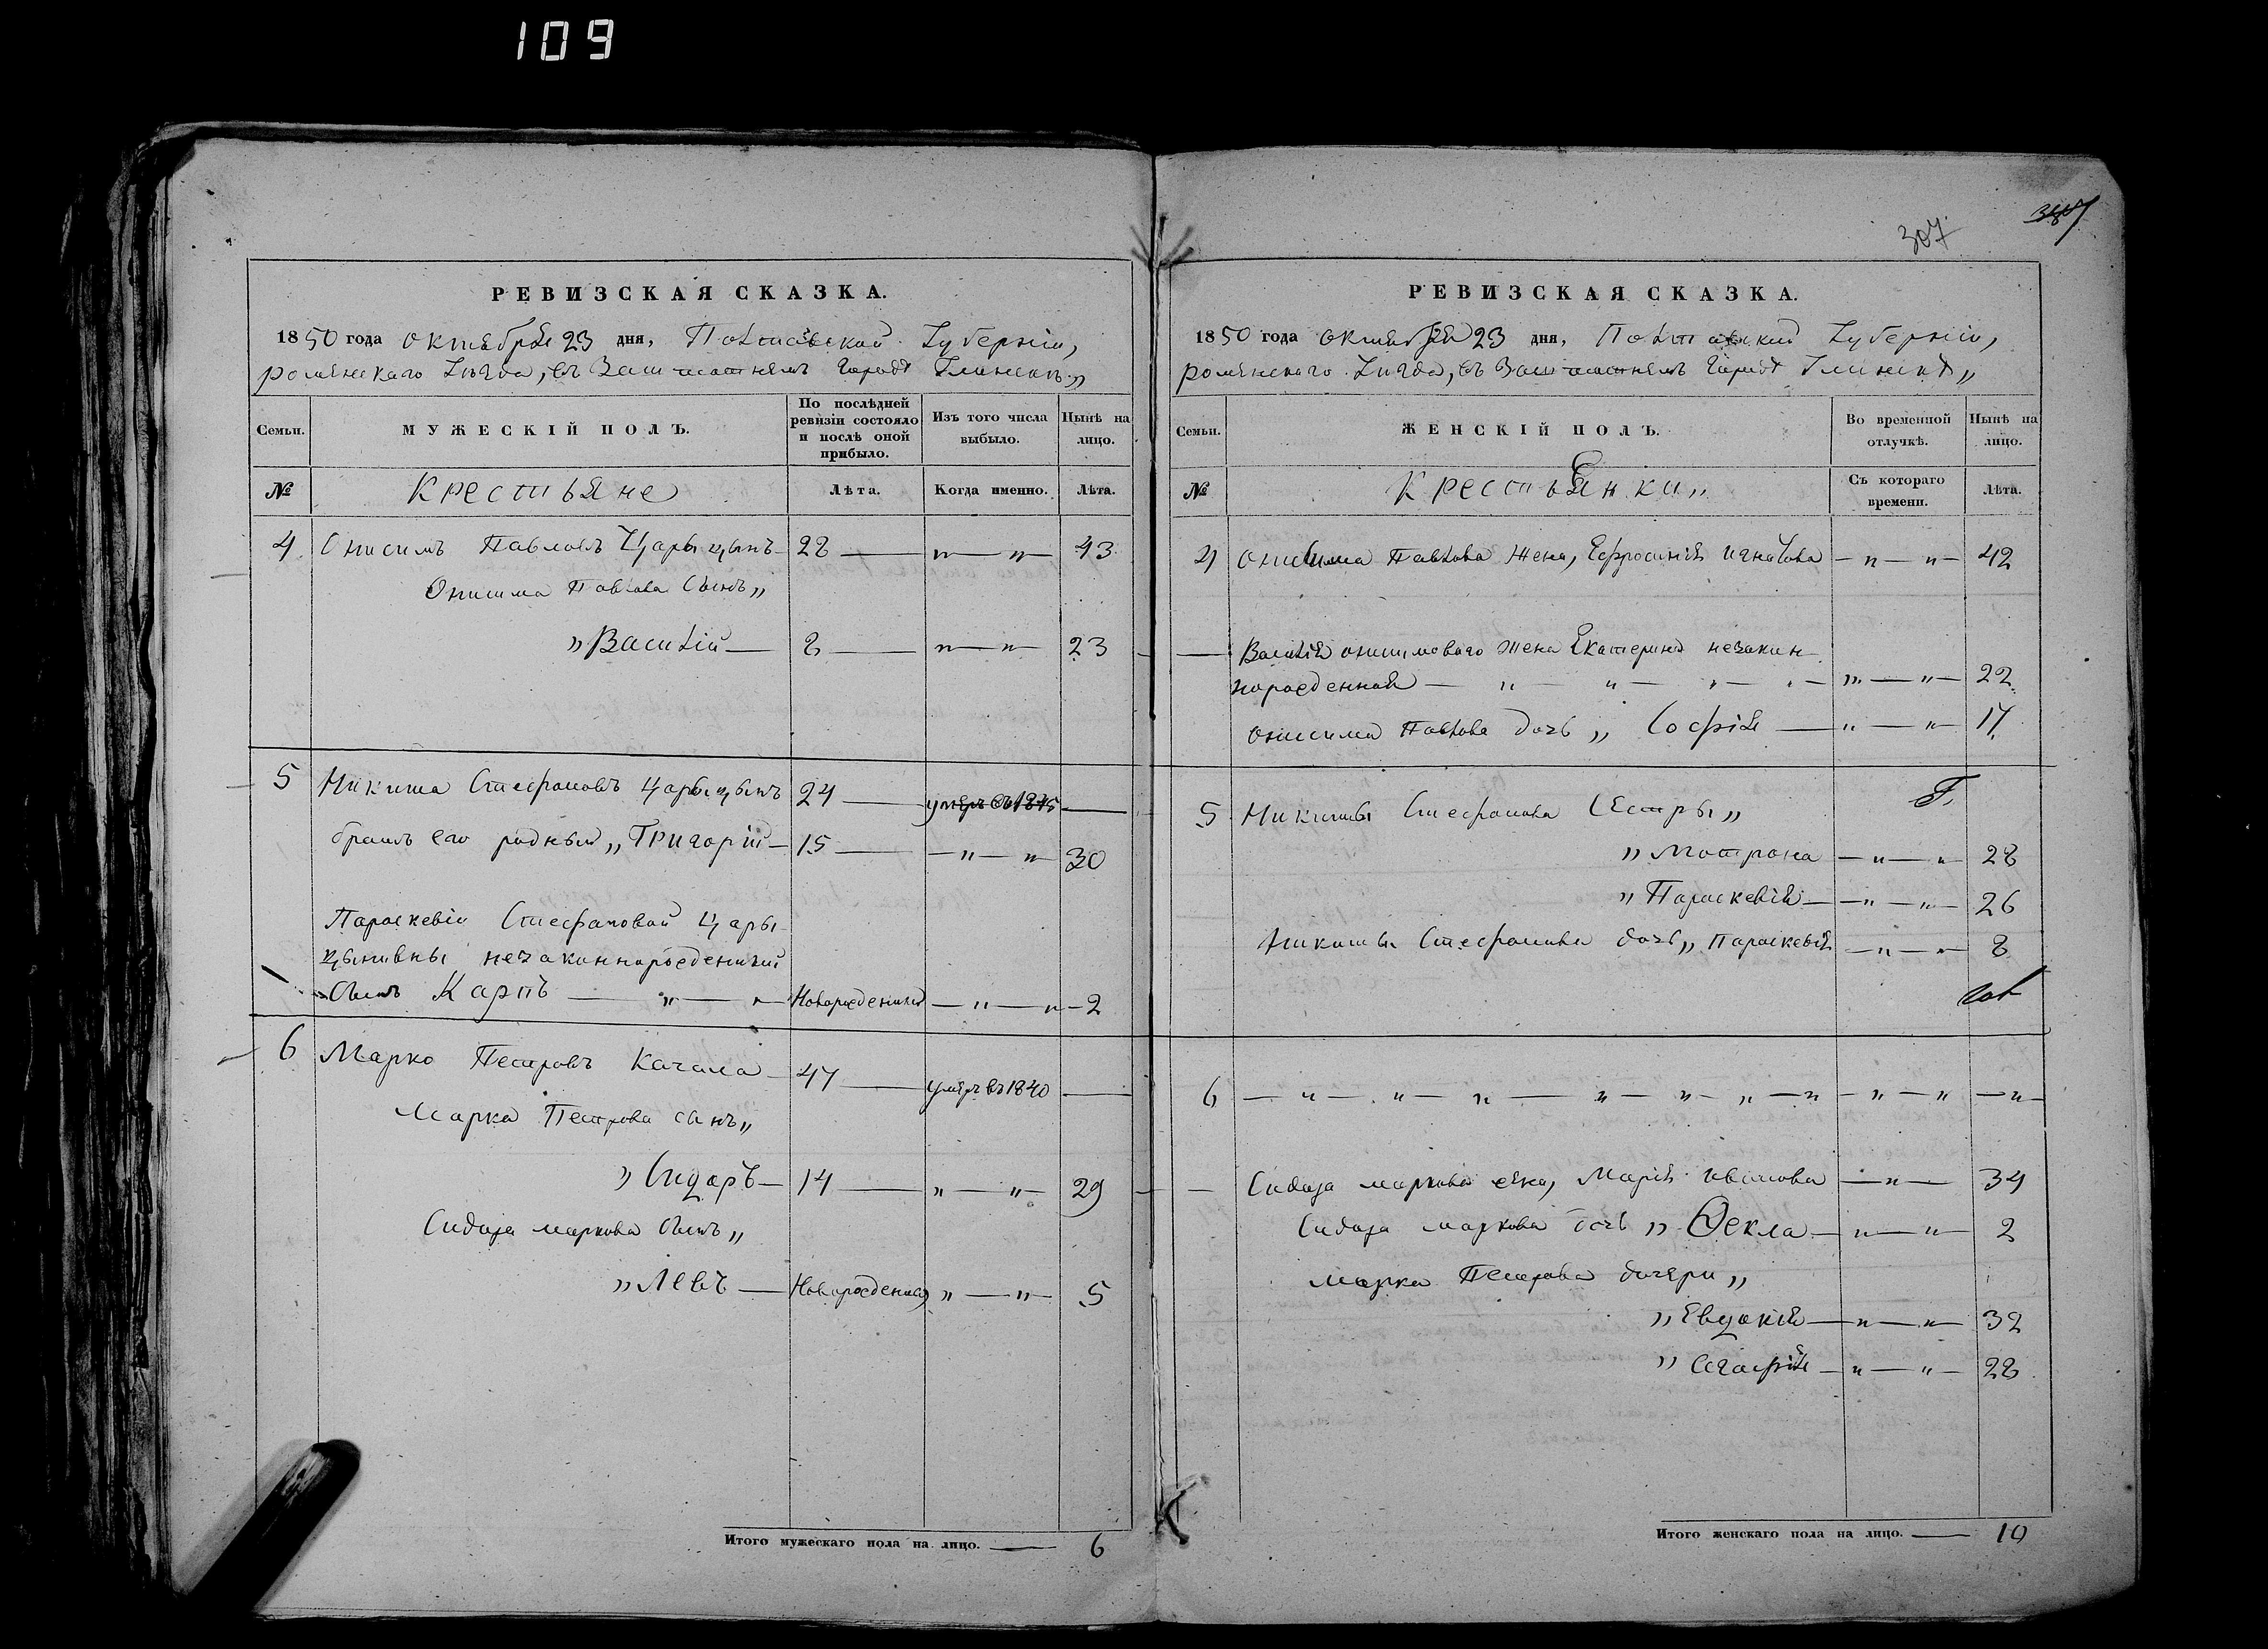 109
307
РЕВИЗСКАЯ СКАЗКА.
1850 года октября 23 дня, Полтавской Губерніи,
роменскаго уѣзда, въ Заштатнемъ городѣ Глинскѣ„
Семьи. МУЖЕСКІЙ ПОЛЪ. По послѣдней ревизіи состояло и послѣ оной прибыло. Изъ того числа выбыло. Нынѣ на лицо.
№ Крестьяне Лѣта. Когда именно. Лѣта.
4 Онисимъ Павловъ Царыцынъ 28 — „ — „ — 43
Онисима Павлова Сынъ„
„Василій — 8 — „ — „ — 23
5 Никита Стефановъ Царыцынъ 24 — умеръ въ 1845 —
братъ его родный „Григорій — 15 — „ — „ — 30
Параскевіи Стефановой Цары-
цынивны незаконнорожденный
Сынъ Карпъ — „ — „ — Новорожденный — „ — „ — 2
6 Марко Петровъ Качала — 47 — умеръ въ 1840 —
Марка Петрова сынъ„
„Сидоръ — 14 — „ — „ — 29
Сидора маркова Сынъ„
„Левъ — Новорожденный „ — „ — 5
Итого мужескаго пола на лицо. — 6
307
РЕВИЗСКАЯ СКАЗКА.
1850 года октября 23 дня, Полтавской Губерніи,
роменскаго уѣзда, въ Заштатнемъ городѣ Глинскѣ„
Семьи. ЖЕНСКІЙ ПОЛЪ. Во временной отлучкѣ. Нынѣ на лицо.
№ Крестьянки„ Съ котораго времени. Лѣта.
4 Онисима Павлова жена, Ефросинія Игнатова — „ — „ — 42
Василія онисимоваго жена Екатерина незакон-
норожденная — „ — „ — „ — „ — 22
Онисима Павлова дочь „ Софія — „ — „ — 17
5 Никиты Стефанова Сестры„
„Мотрона — „ — „ — 28
„Параскевія — „ — „ — 26
Никиты Стефанова дочь„ Параскевія — „ — „ — 8
6 — „ — „ — „ — „ — „ — „ — „ — „ — „ — „ —
Сидора маркова жена, Марія Иванова — „ — 34
Сидора маркова дочь „ Ѳекла — „ — „ — 2
Марка Петрова дочери„
„Евдокія — „ — „ — 32
„Агафія — „ — „ — 28
Итого женскаго пола на лицо. — 10